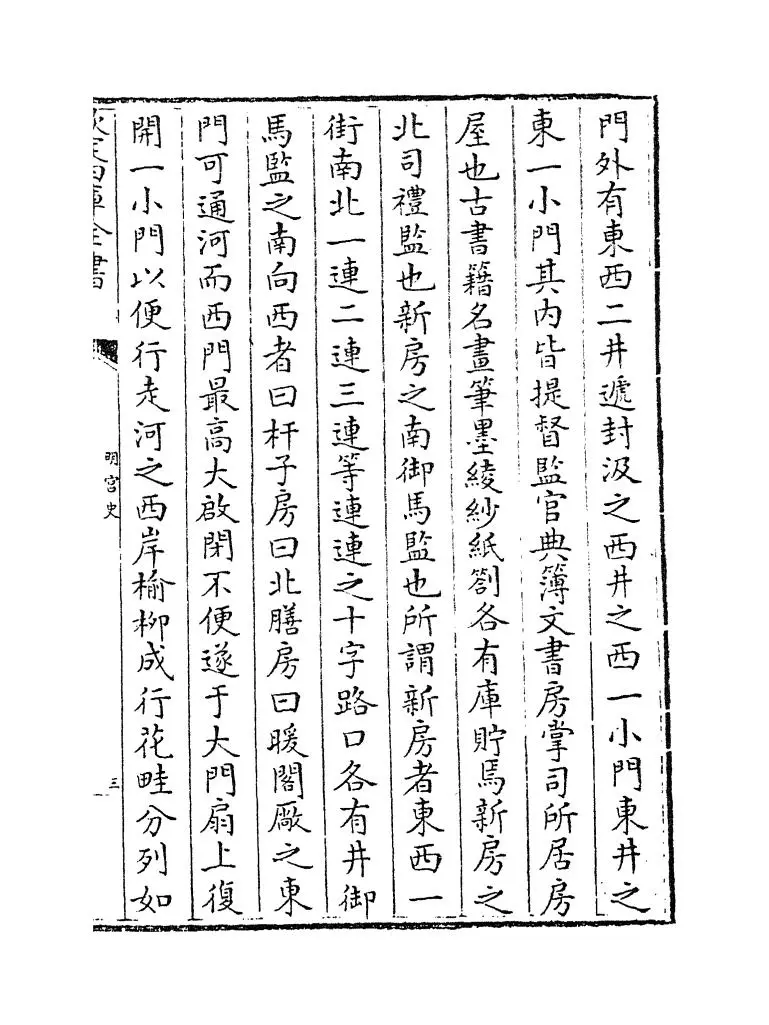 門外有東西二井遞封汲之西井之西一小門東井之
東一小門其内皆提督監官典簿文書房掌司所居房
屋也古書籍名畫筆墨綾紗紙劄各有庫貯焉新房之
北司禮監也新房之南御馬監也所謂新房者東西一
街南北一連二連三連等連連之十字路口各有井御
馬監之南向西者曰杆子房曰北膳房曰暖閣厰之東
門可通河而西門最高大啟閉不便遂于大門扇上復
開一小門以便行走河之西岸榆柳成行花畦分列如
欽定四庫全書
明宫史
三